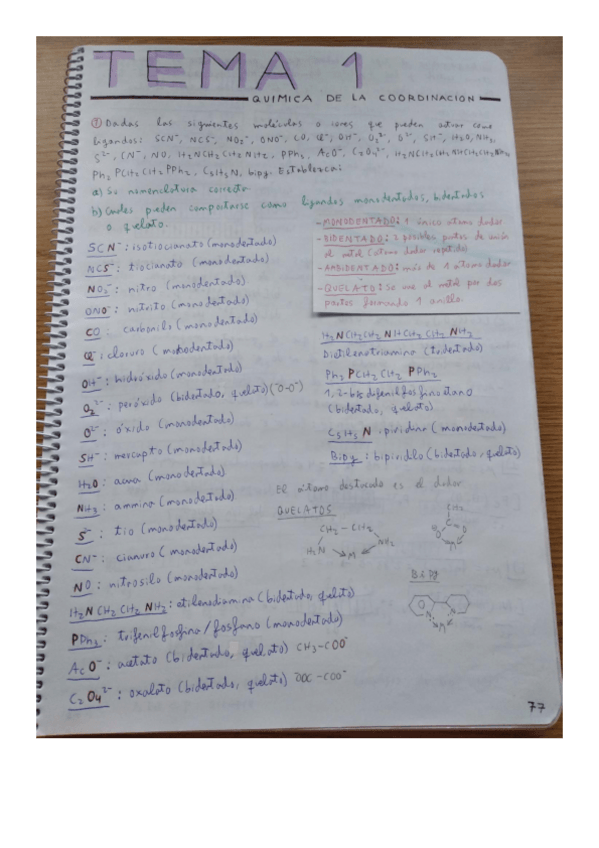 TEMA 1
QUIMICA DE LA COORDINACION
① Dadas las siguientes moléculas o iones que pueden actuar como
ligandos: SCN⁻, NCS⁻, NO₂⁻, ONO⁻, CO, Cl⁻, OH⁻, O₂²⁻, O²⁻, SH⁻, H₂O, NH₃,
S²⁻, CN⁻, NO, H₂NCH₂CH₂NH₂, PPh₃, AcO⁻, C₂O₄²⁻, H₂NCH₂CH₂NHCH₂CH₂NH₂,
Ph₂PCH₂CH₂PPh₂, C₅H₅N, bipy. Establezca:
a) Su nomenclatura correcta
b) Cuáles pueden comportarse como ligandos monodentados, bidentados
o quelato.
- MONODENTADO: 1 único átomo dador
- BIDENTADO: 2 posibles puntos de unión
al metal (átomo dador repetido)
- AMBIDENTADO: más de 1 átomo dador
- QUELATO: se une al metal por dos
puntos formando 1 anillo.
SCN⁻: isotiocianato (monodentado)
NCS⁻: tiocianato (monodentado)
NO₂⁻: nitro (monodentado)
ONO⁻: nitrito (monodentado)
CO: carbonilo (monodentado)
Cl⁻: cloruro (monodentado)
OH⁻: hidróxido (monodentado)
O₂²⁻: peróxido (bidentado, quelato) (⁻O-O⁻)
O²⁻: óxido (monodentado)
SH⁻: mercapto (monodentado)
H₂O: acua (monodentado)
NH₃: ammina (monodentado)
S²⁻: tio (monodentado)
CN⁻: cianuro (monodentado)
NO: nitrosilo (monodentado)
H₂NCH₂CH₂NH₂: etilenodiamina (bidentado, quelato)
PPh₃: trifenilfosfina/fosfano (monodentado)
AcO⁻: acetato (bidentado, quelato) CH₃-COO⁻
C₂O₄²⁻: oxalato (bidentado, quelato) ⁻OOC-COO⁻
H₂NCH₂CH₂NHCH₂CH₂NH₂
Dietilenotriamina (tridentado)
Ph₂PCH₂CH₂PPh₂
1,2-bis difenilfosfinoetano
(bidentado, quelato)
C₅H₅N: piridina (monodentado)
Bipy: bipiridilo (bidentado, quelato)
El átomo destacado es el dador
QUELATOS
CH₂ - CH₂
H₂N NH₂
M
CH₃
C
O O
M
Bipy
N N
M
77